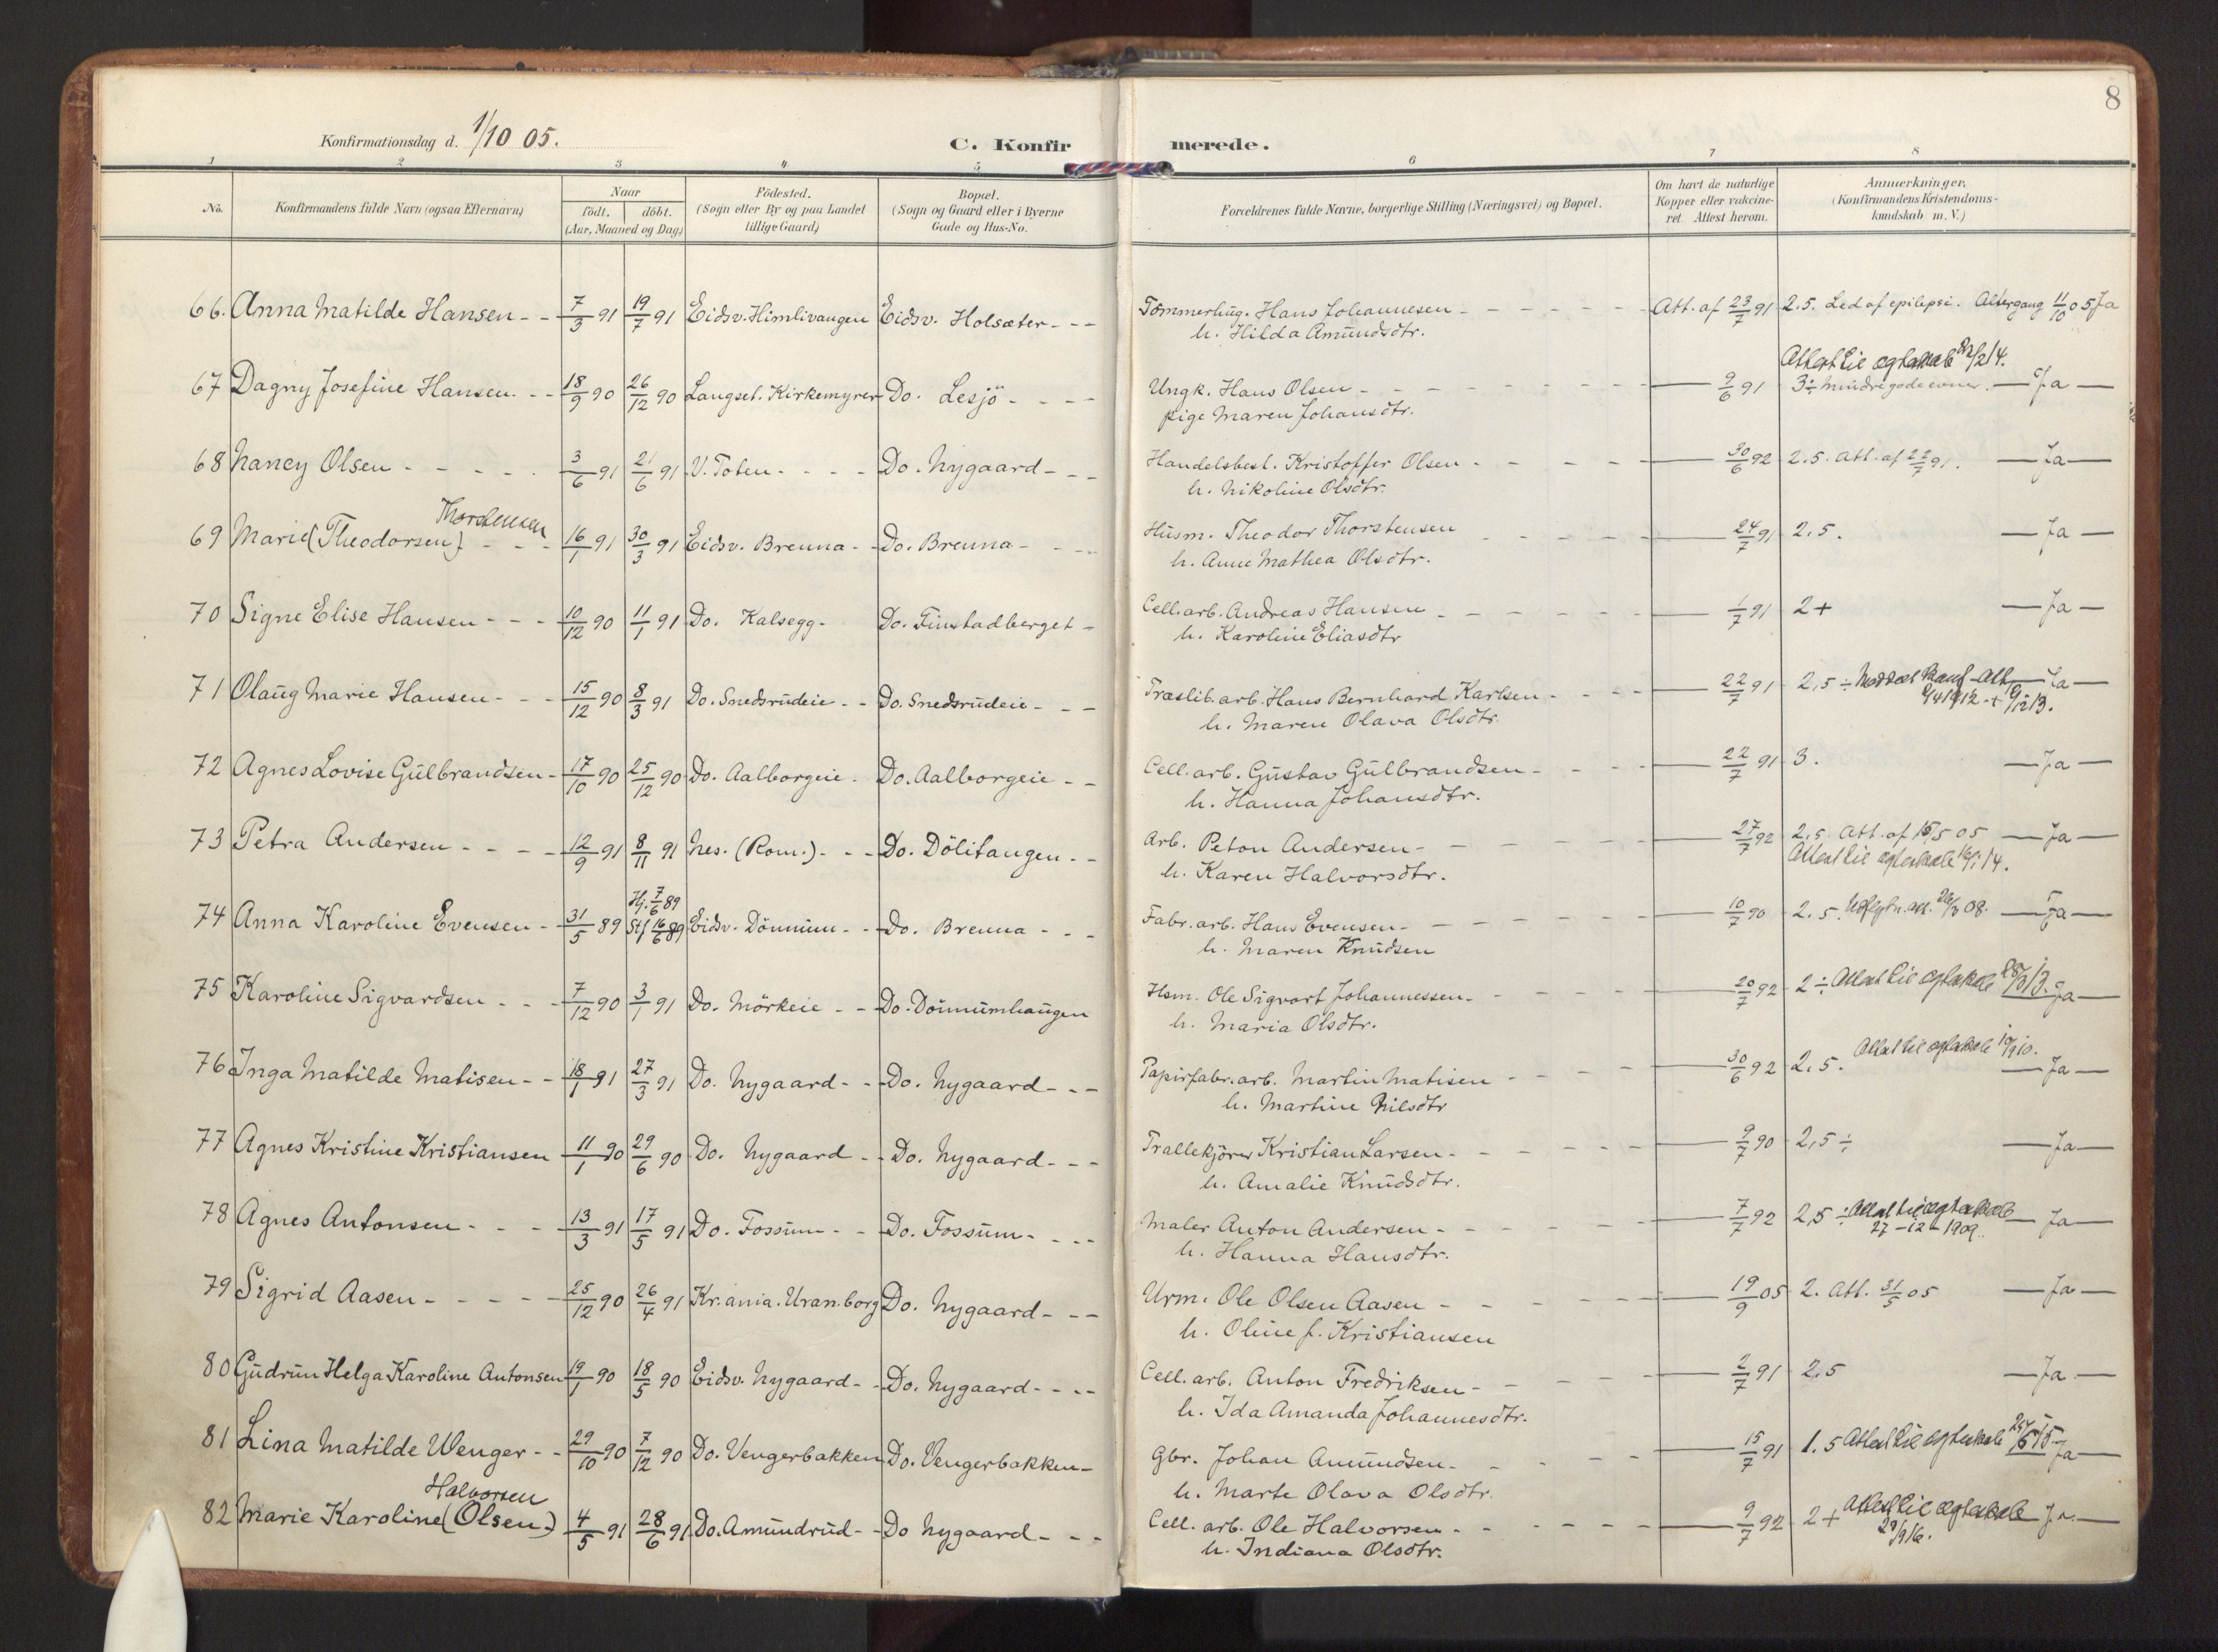 8
Konfirmationsdag d. 1/10 05.
C. Konfirmerede.
1 2 3 4 5 6 7 8
No. Konfirmandens fulde Navn (ogsaa Efternavn) Naar födt. döbt. (Aar, Maaned og Dag) Födested. (Sogn eller By og paa Landet tillige Gaard) Bopæl. (Sogn og Gaard eller i Byerne Gade og Hus-No. Forældrenes fulde Navne, borgerlige Stilling (Næringsvei) og Bopæl. Om havt de naturlige Kopper eller vaccineret. Attest herom. Anmærkninger. (Konfirmandens Kristendomskundskab m. V.)
66. Anna Matilde Hansen - - 7/3 91 19/7 91 Eidsv. Himlivangen Eidsv. Holsæter - - - Tömmerhug. Hans Johannesen - - - Att. af 23/7 91 2.5. Led af epilepsi. Altergang 11/10 05 Ja
h. Hilda Amundsdtr.
Attest til ægteskab 2/14.
67 Dagny Josefine Hansen. - - 18/9 90 26/12 90 Langset. Kirkemyrer Do. Lesjö - - - Ungk. Hans Olsen - - - 9/6 91 3÷ mindre gode evner. — Ja —
pige Maren Johansdtr.
68 Nancy Olsen - - - 3/6 91 21/6 91 V. Toten - - - Do. Nygaard - - Handelsbest. Kristoffer Olsen - - - 30/6 92 2.5. Att. af 22/7 91. — Ja —
h. Nikoline Olsdtr.
Thorstensen
69 Marie (Theodorsen) - - - 16/1 91 30/3 91 Eidsv. Brenna - - Do. Brenna - - - Husm. Theodor Thorstensen - - - 24/7 91 2.5. — Ja —
h. Anne Mathea Olsdtr.
70 Signe Elise Hansen - - - 10/12 90 11/1 91 Do. Kalsegg - Do. Finstadberget - Cell. arb. Andreas Hansen - - - 1/7 91 2+ — Ja —
h. Karoline Eliasdtr
71 Olaug Marie Hansen - - - 15/12 90 8/3 91 Do. Snedsrudeie - - Do. Snedsrudeie - - - Træslib. arb. Hans Bernhard Karlsen - - - 22/7 91 2,5 ÷ — Ja —
h. Maren Olava Olsdtr.
72 Agnes Lovise Gulbrandsen - 17/10 90 25/12 90 Do. Aalborgeie - Do. Aalborgeie - - Cell. arb. Gustav Gulbrandsen - - - 22/7 91 3. — Ja —
h. Hanna Johansdtr.
73 Petra Andersen - - - 12/9 91 8/11 91 Nes. (Rom.) - - - Do. Dölitangen - - Arb. Peton Andersen - - - 27/7 92 2,5 Att. af 15/5 05 — Ja —
h. Karen Halvorsdtr. Attest til ægteskab 16/1 14.
Hj. 7/6 89
74 Anna Karoline Evensen - 31/5 89 Stf 16/6 89 Eidsv. Dönnum - - Do. Brenna - - - Fabr. arb. Hans Evensen - - - 10/7 90 2.5. — Ja —
h. Maren Knudsen
75 Karoline Sigvardsen - - - 7/12 90 3/1 91 Do. Mörkeie - - Do. Dönnumhaugen Hsm. Ole Sigvart Johannessen - - - 20/7 92 2 ÷ Attest til ægteskab Ja —
h. Maria Olsdtr.
Attest til ægteskab
76 Inga Matilde Matisen - - 18/1 91 27/3 91 Do. Nygaard - - Do. Nygaard - - - Papirfabr. arb. Martin Matisen - - - 30/6 92 2.5. — Ja —
h. Martine Nilsdtr
77 Agnes Kristine Kristiansen 11/1 90 29/6 90 Do. Nygaard - - Do. Nygaard - - - Trallekjörer Kristian Larsen - - - 9/7 90 2,5 ÷ — Ja —
h. Amalie Knudsdtr.
78 Agnes Antonsen - - - 13/3 91 17/5 91 Do. Fossum - - Do. Fossum - - - - Maler Anton Andersen - - - 7/7 92 2,5 ÷ Attest til ægteskab — Ja —
h. Hanna Hansdtr. 27 - 12 - 1909.
79 Sigrid Aasen - - - 25/12 90 26/4 91 Kr.ania. Uran.borg Do. Nygaard - - - Urm. Ole Olsen Aasen - - - 19/9 05 2. Att. 31/5 05 — Ja —
h. Oline f. Kristiansen
80 Gudrun Helga Karoline Antonsen 19/1 90 18/5 90 Eidsv. Nygaard - - Do. Nygaard - - - - Cell. arb. Anton Fredriksen - - - 2/7 91 2,5 — Ja —
h. Ida Amanda Johannesdtr.
81 Lina Matilde Wenger - - 29/10 90 7/12 90 Do. Vengerbakken Do. Vengerbakken - Gbr. Johan Amundsen - - - 15/7 91 1.5 Attest til ægteskab Ja —
h. Marte Olava Olsdtr.
Halvorsen
82 Marie Karoline (Olsen) 4/5 91 28/6 91 Do. Amundrud - - Do Nygaard - - - Cell. arb. Ole Halvorsen - - - 9/7 92 2+ Attest til ægteskab Ja. —
h. Indiana Olsdtr. 29/9 16.